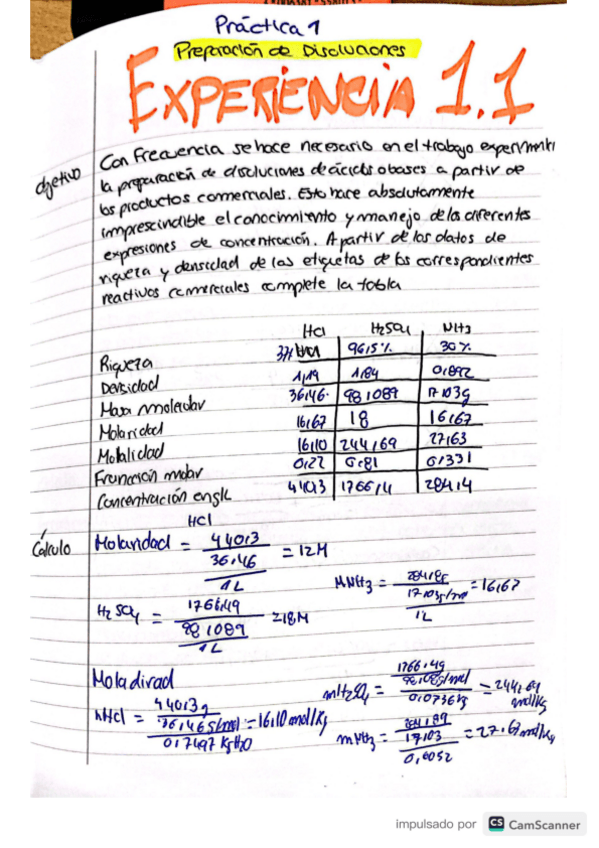 Práctica 1
Preparación de Disoluciones
EXPERIENCIA 1.1
Objetivo
Con Frecuencia se hace necesario en el trabajo experimental
la preparación de disoluciones de ácidos o bases a partir de
los productos comerciales. Esto hace absolutamente
imprescindible el conocimiento y manejo de las diferentes
expresiones de concentración. A partir de los datos de
riqueza y densidad de las etiquetas de los correspondientes
reactivos comerciales complete la tabla
HCl H2SO4 NH3
Riqueza 37% 96,5% 30%
Densidad 1,19 1,84 0,892
Masa molecular 36,46 98,089 17,03g
Molaridad 16,67 18 16,67
Molalidad 16,10 244,69 27,63
Fracción molar 0,22 0,81 0,331
Concentración en g/L 440,3 1766,4 284,4
HCl
Cálculo
Molaridad = 440,3 / 36,46 / 1L = 12M
MNH3 = 17,03g/mol / 1L = 16,67
H2SO4 = 1766,49 / 98,089 / 1L = 18M
Moladirad
mHCl = 440,3g / 36,46g/mol / 0,7497 Kg H2O = 16,10 mol/Kg
mH2SO4 = 1766,49 / 98,08g/mol / 0,0736Kg = 244,69 mol/Kg
mNH3 = 284,89 / 17,03 / 0,6052 = 27,63 mol/Kg
impulsado por CS CamScanner